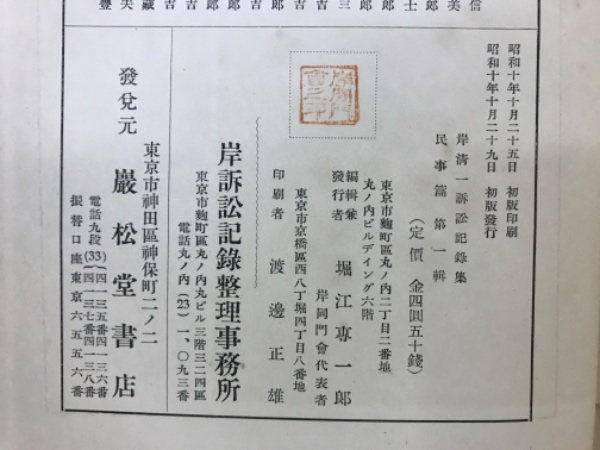 信
美
郎
士
郎
郎
三
吉
吉
郎
吉
郎
吉
吉
藏
夫
豐
昭和十年十月二十五日　初版印刷
昭和十年十月二十九日　初版發行
岸清一訴訟記錄集
民事篇第一輯
（定價　金四圓五十錢）
東京市麴町區丸ノ内二丁目二番地
丸ノ内ビルデイング六階
編輯兼
發行者　堀江專一郎
岸同門會代表者
東京市京橋區西八丁堀四丁目八番地
印刷者　渡邊正雄
岸訴訟記錄整理事務所
東京市麴町區丸ノ内丸ビル三階三二四區
電話丸ノ内（23）一、〇九三番
東京市神田區神保町二ノ二
發兌元　巖松堂書店
電話九段（33）（四一三五番四一三六番
（四一三七番四一三八番
振替口座東京六五五六番